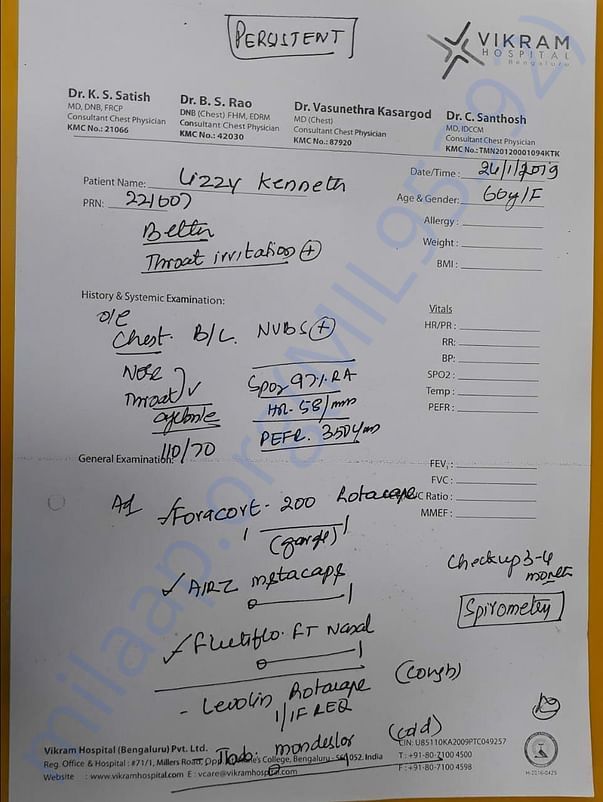 PERSISTENT
VIKRAM
HOSPITAL
Bengaluru
Dr. K. S. Satish
MD, DNB, FRCP
Consultant Chest Physician
KMC No.: 21066
Dr. B. S. Rao
DNB (Chest) FHM, EDRM
Consultant Chest Physician
KMC No.: 42030
Dr. Vasunethra Kasargod
MD (Chest)
Consultant Chest Physician
KMC No.: 87920
Dr. C. Santhosh
MD, IDCCM
Consultant Chest Physician
KMC No.: TMN20120001094KTK
Date/Time : 24/1/2019
Patient Name: Lizzy Kenneth
Age & Gender: 66y/F
PRN: 221607
Allergy :
Better
Weight :
Throat irritation +
BMI :
History & Systemic Examination:
Vitals
O/E
Chest. B/L. NVBS +
HR/PR :
RR:
BP:
Nose
Throat
SPO2 97% RA
SPO2 :
HR- 58/mm
Temp :
PEFR. 350 l/m
PEFR :
110/70
General Examination:
FEV1 :
FVC :
C Ratio :
MMEF :
Ad
Foracort- 200 Rotacaps
1 1
(gargle)
Checkup 3-4
month
AIRZ metacaps
0 1
Spirometry
Flutiflo. FT Nasal
0 1
- Levolin Rotacaps (cough)
1/1F REQ
(cold)
Tab: mondeslor
Vikram Hospital (Bengaluru) Pvt. Ltd.
CIN: U85110KA2009PTC049257
Reg. Office & Hospital : #71/1, Millers Road, Opp. 's College, Bengaluru - 561052. India
T : +91-80-7100 4500
Website : www.vikramhospital.com E : vcare@vikramhospital.com
F : +91-80-7100 4598
H-2016-0425